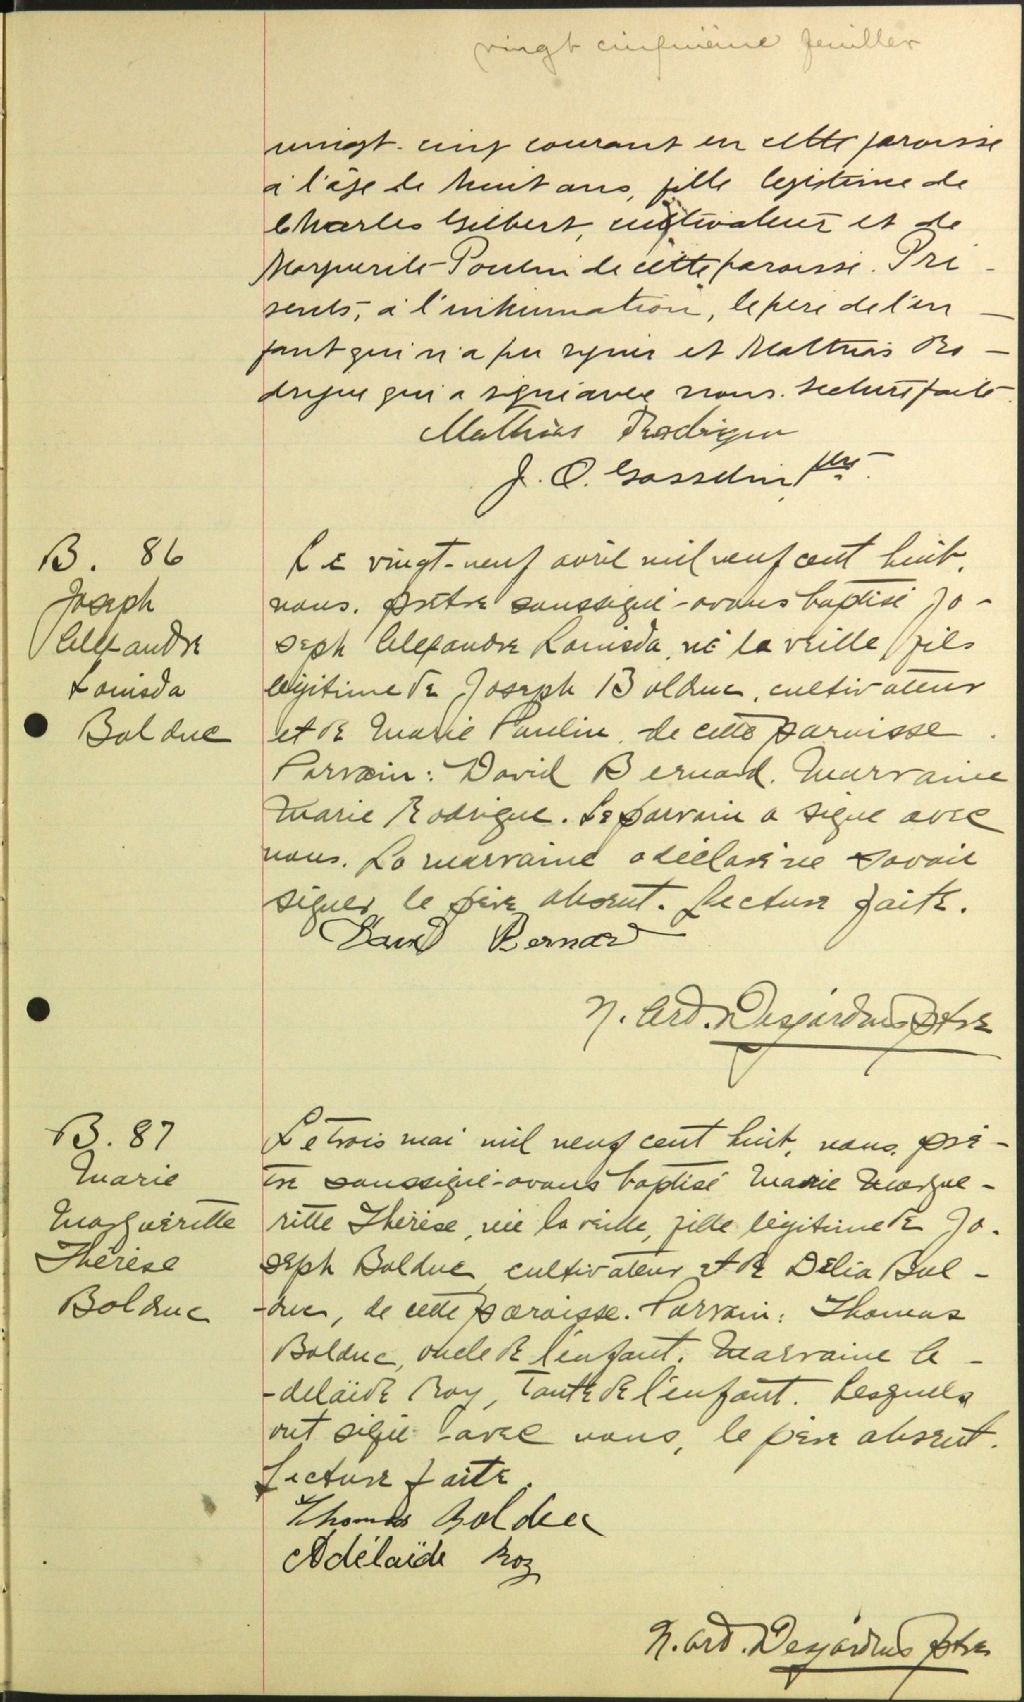 vingt cinquième feuillet
vingt-cinq courant en cette paroisse
à l'âge de huit ans, fille légitime de
Charles Gilbert, cultivateur et de
Marguerite Poulin de cette paroisse. Pré-
sents, à l'inhumation, le père de l'en-
fant qui n'a pu signer et Mathias Ro-
drigue qui a signé avec nous. Lecture faite.
Mathias Rodrigue
J. O. Gosselin, ptre.
B. 86
Joseph
Alexandre
Louisda
Bolduc
Le vingt-neuf avril mil neuf cent huit,
nous, prêtre soussigné-avons baptisé Jo-
seph Alexandre Louisda, né la veille, fils
légitime de Joseph Bolduc, cultivateur
et de Marie Poulin, de cette paroisse.
Parrain: David Bernard. Marraine
Marie Rodrigue. Le parrain a signé avec
nous. La marraine a déclaré ne savoir
signer, le père absent. Lecture faite.
David Bernard
N. Ard. Desjardins ptre
B. 87
Marie
Marguéritte
Thérèse
Bolduc
Le trois mai mil neuf cent huit, nous, prê-
tre soussigné-avons baptisé Marie Margue-
ritte Thérèse, née la veille, fille légitime de Jo-
seph Bolduc, cultivateur et de Délia Bol-
-duc, de cette paroisse. Parrain: Thomas
Bolduc, oncle de l'enfant. Marraine A-
-delaïde Roy, tante de l'enfant. Lesquels
ont signé avec nous, le père absent.
Lecture faite.
Thomas Bolduc
Adélaïde Roy
N. Ard. Desjardins ptre